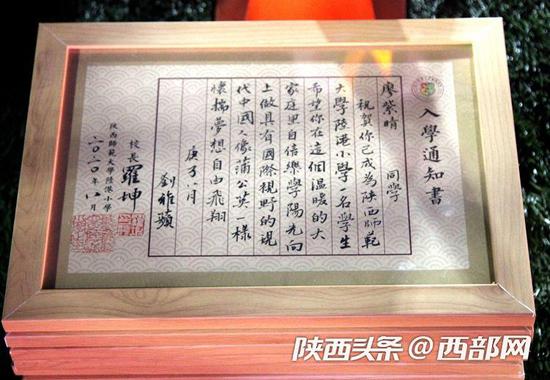 入學通知書
廖紫晴 同學
祝賀你已成為陝西師範
大學陸港小學一名學生
希望你在這個溫暖的大
家庭里自信樂學陽光向
上做具有國際視野的現
代中國人像蒲公英一樣
懷揣夢想自由飛翔
庚子八月
劉
校長 羅坤
陝西師範大學陸港小學
二〇二〇年八月
陕西头条@西部网